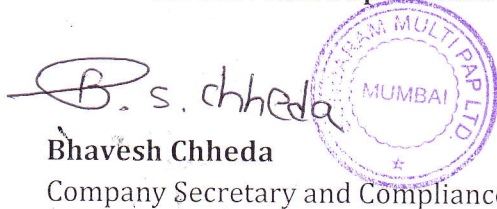 B. S. Chheda
MULTI PAP LTD.
MUMBAI
Bhavesh Chheda
Company Secretary and Compliance